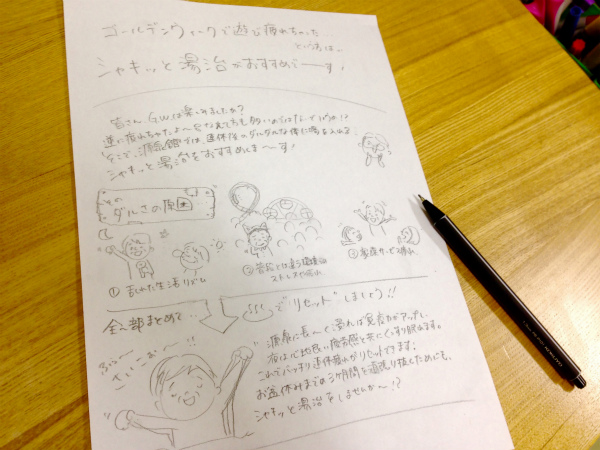 ゴールデンウィークで遊び疲れちゃった
という方は、
シャキッと湯治がおすすめでーす!
皆さん GWは楽しめましたか?
逆に疲れちゃったよーなんて方も多いのではないでしょうか!?
そこで、源泉館では、連休後のダルダルな体に喝を入れる
シャキッと湯治をおすすめしまーす!
その
ダルさの原因
① 乱れた生活リズム
② 普段とは違う環境の
ストレスや疲れ
③ 家庭サービス疲れ
全部まとめて
でリセットしましょう!!
ふぅ〜
さいこぉ〜!!
源泉に長〜く浸れば免疫力がアップし、
夜は心地良い疲労感と共にぐっすり眠れます。
これでバッチリ連休疲れがリセットできます!
お盆休みまでの3ヶ月間を頑張り抜くためにも、
シャキッと湯治をしませんか〜!?